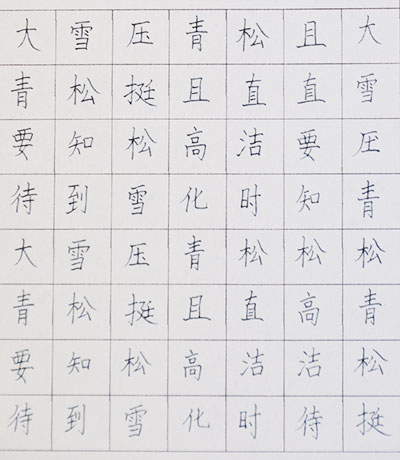 大雪压青松且大
青松挺且直直雪
要知松高洁要压
待到雪化时知青
大雪压青松松松
青松挺且直高青
要知松高洁洁松
待到雪化时待挺